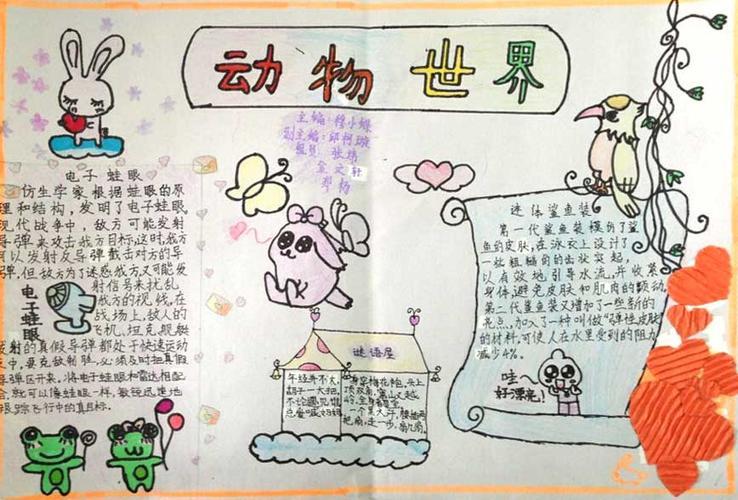 动物世界
主编：穆小蝶
副主编：邱柯璇
组员：张炜
金文轩
李杨
电子蛙眼
仿生学家根据蛙眼的原
理和结构，发明了电子蛙眼。
现代战争中，敌方可能发射
导弹来攻击我方目标，这时，我方
可以发射反导弹截击对方的导
弹，但敌方为了迷惑我方，又可能发
射信号来扰乱
我方的视线，在
战场上，敌人的
飞机，坦克，舰艇
发射的真假导弹都处于快速运动
之中，要克敌制胜，必须及时把真假
导弹区开来，将电子蛙眼和雷达相配
合，就可以像蛙眼一样，敏锐迅速地
跟踪飞行中的真目标。
电子蛙眼
谜语屋
年纪并不大，
胡子一大把，
不论遇见谁，
总爱喊妈妈
身穿梅花袍，头上
顶双角，翻山又越
岭，全身都是宝
一个黑大汉，腰插两
把扇，走一步，扇几扇。
迷体鲨鱼装
第一代鲨鱼装模仿了鲨
鱼的皮肤，在泳衣上设计了
一些粗糙的齿状突起，
以有效地引导水流，并收紧
身体，避免皮肤和肌肉的颤动，
第二代鲨鱼装又增加了一些新的
亮点，加入了一种叫做“弹性皮肤”
的材料，可使人在水里受到的阻力
减少4%。
哇
好漂亮！